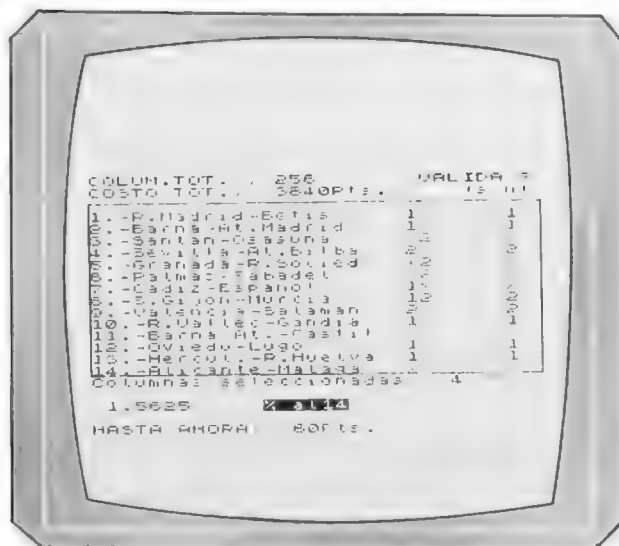 COLUM.TOT. . 256 VALIDA ?
COSTO TOT. . 3840Pts. (s n)
1.-R.Madrid-Betis 1 1
2.-Barna-At.Madrid 1 1
3.-Santan-Osasuna
4.-Sevilla-At.Bilba
5.-Granada-R.Socied
6.-Palmac-Sabadel
7.-Cadiz-Español 1
8.-S.Gijon-Murcia
9.-Valencia-Salaman
10.-R.Vallec-Gandia 1 1
11.-Barna At.-Castil
12.-Oviedo-Lugo 1 1
13.-Hercul.-R.Huelva 1 1
14.-Alicante-Malaga
Columnas seleccionadas 4
1.5625 % al14
HASTA AHORA 60Pts.